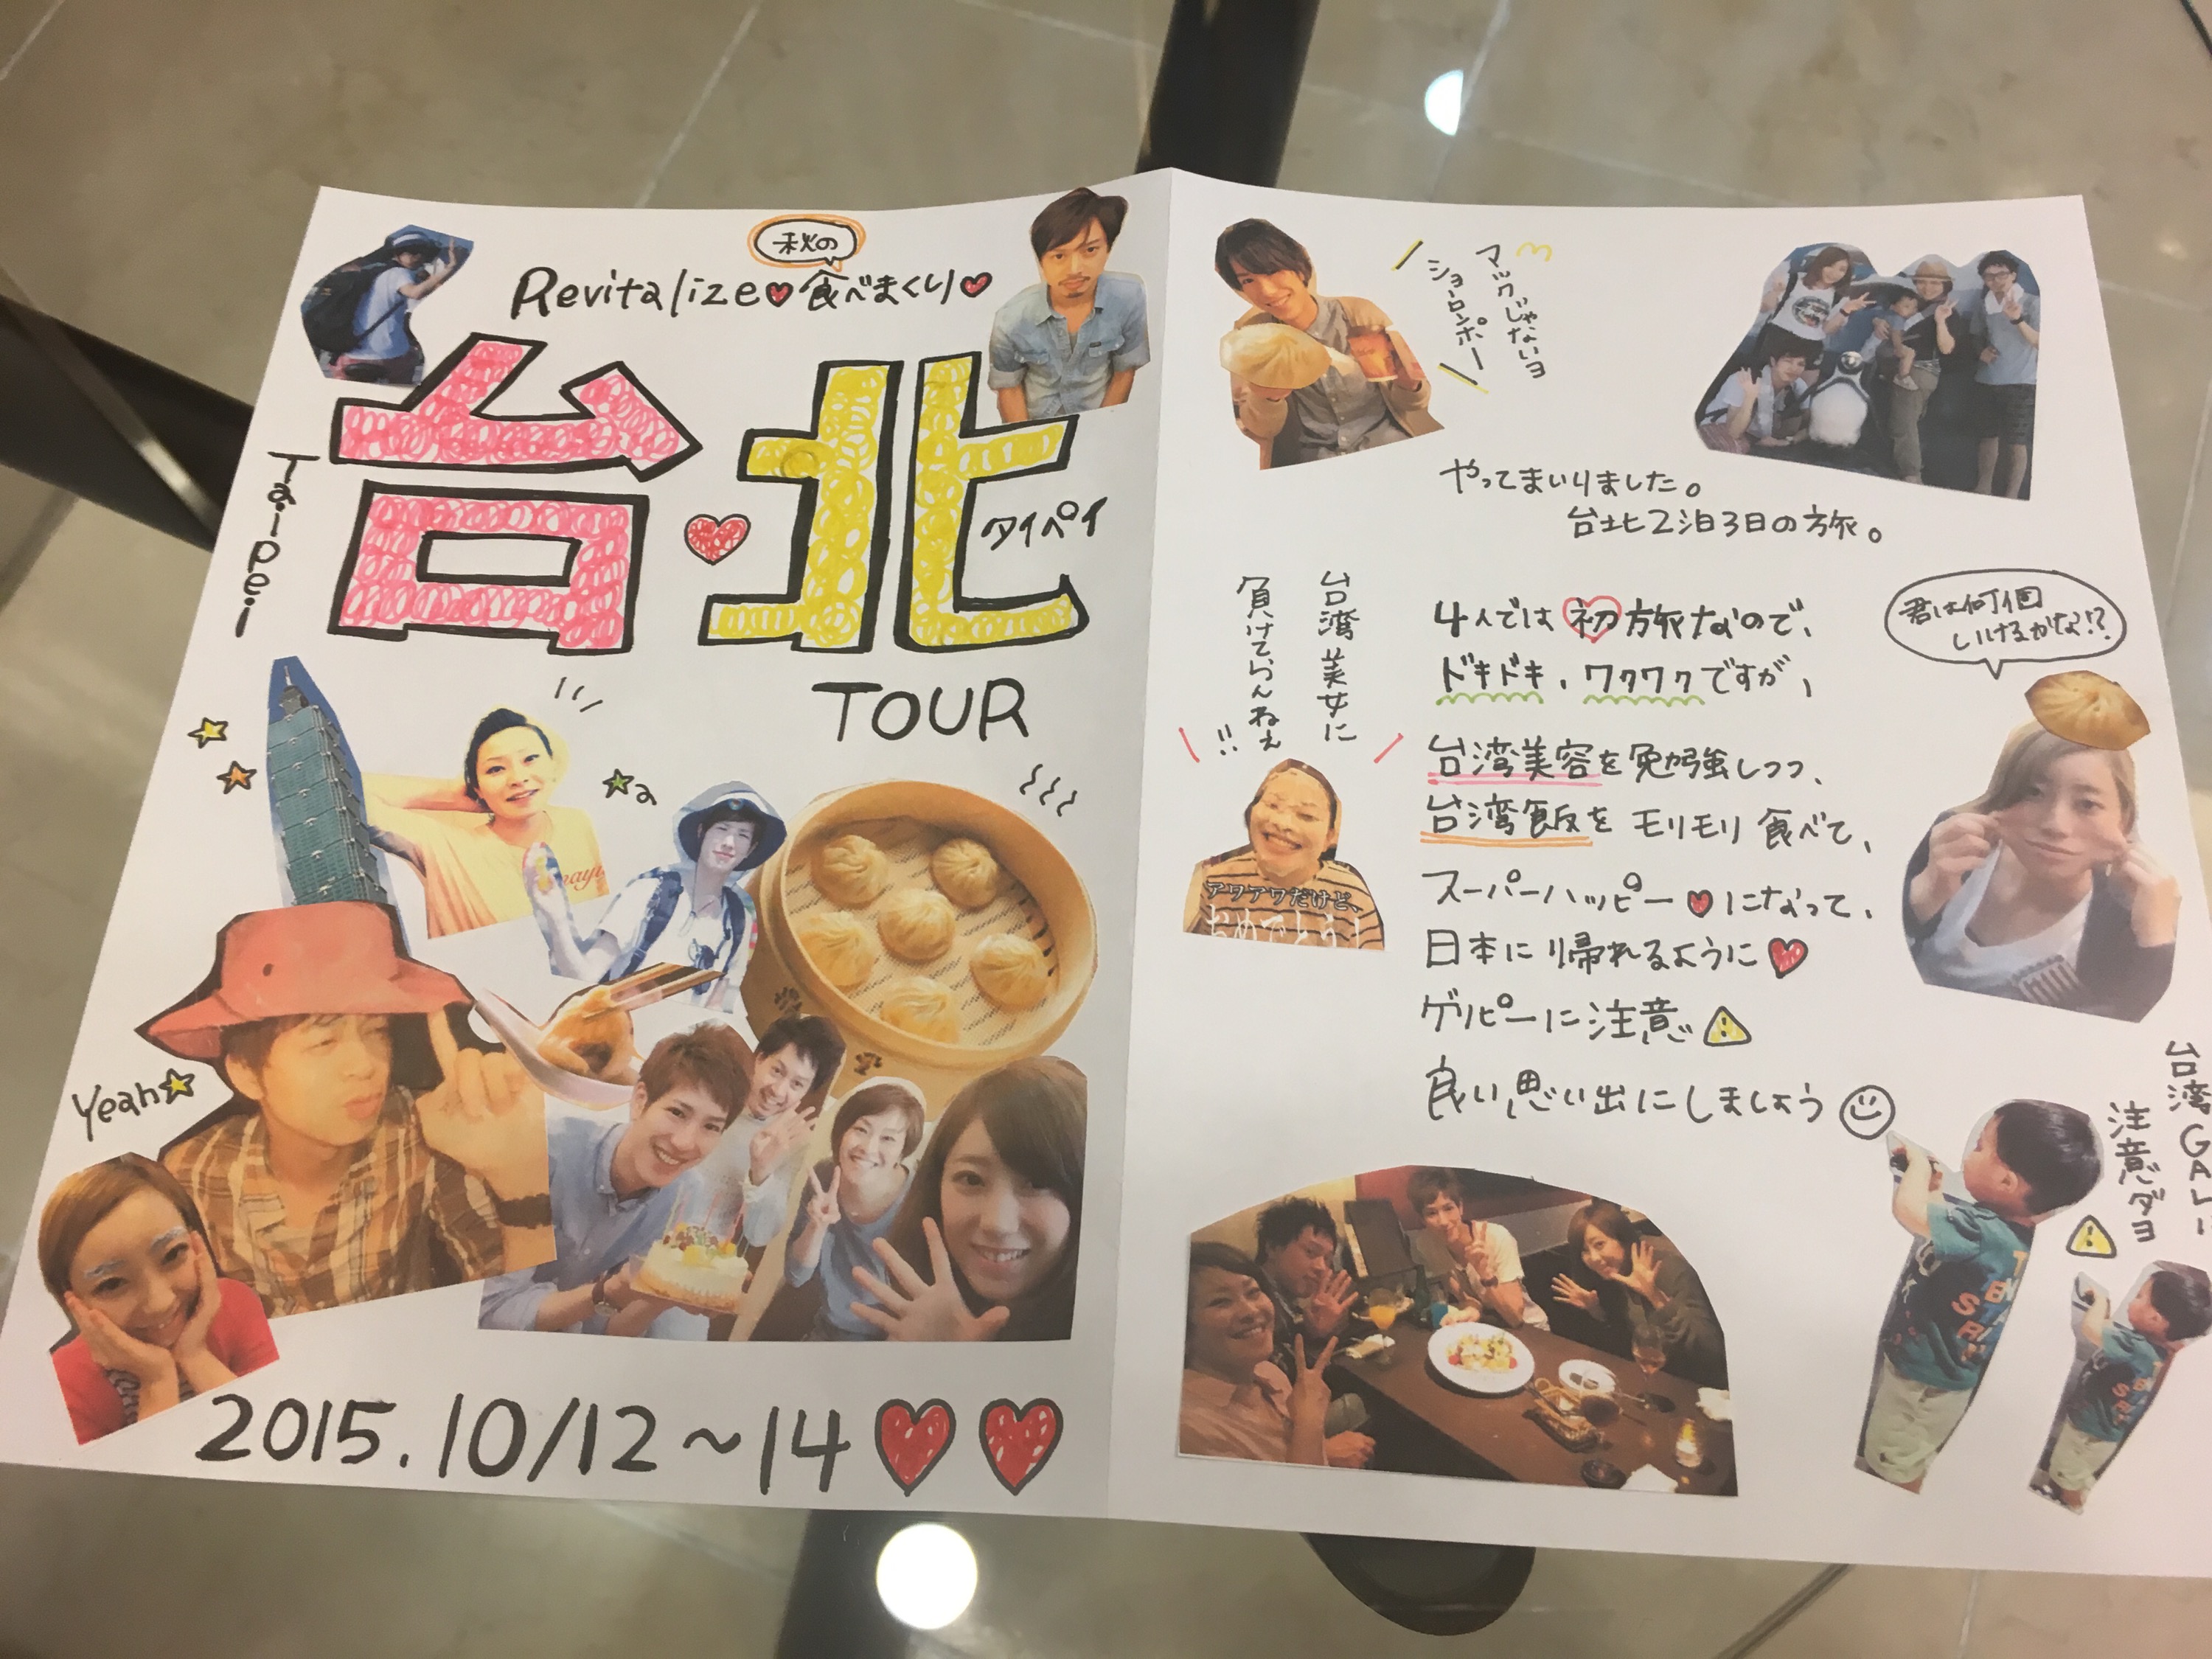 秋の
Revitalize♥食べまくり♥
台♥北
タイペイ
Taipei
TOUR
Yeah☆
2015.10/12～14♥♥
マックじゃないヨ
ショーロンポー
やってまいりました。
台北2泊3日の旅。
台湾美女に
負けてらんねぇ!!
アワアワだけど、
おめでとう！
4人では初旅なので、
ドキドキ、ワクワクですが、
台湾美容を勉強しつつ、
台湾飯をモリモリ食べて、
スーパーハッピー♥になって、
日本に帰れるように♥
ゲリピーに注意⚠
良い思い出にしましょう☺
君は何個
いけるかな!?
台湾GAL
注意ダヨ
⚠